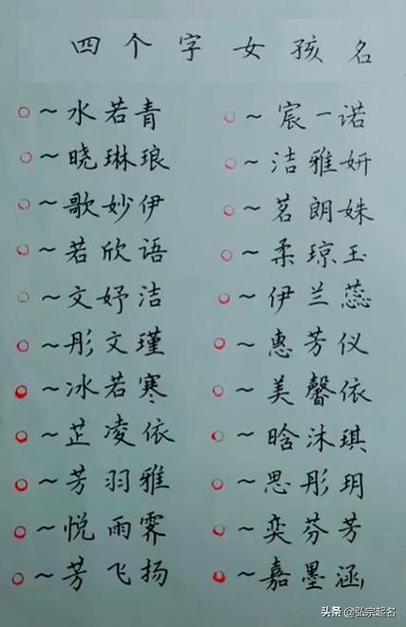 四个字女孩名
~水若青
~晓琳琅
~歌妙伊
~若欣语
~文妤洁
~彤文瑾
~冰若寒
~芷凌依
~芳羽雅
~悦雨霁
~芳飞扬
~宸一诺
~洁雅妍
~茗朗姝
~柔琼玉
~伊兰蕊
~惠芳仪
~美馨依
~晗沐琪
~思彤玥
~奕芬芳
~嘉墨涵
头条@弘宗起名